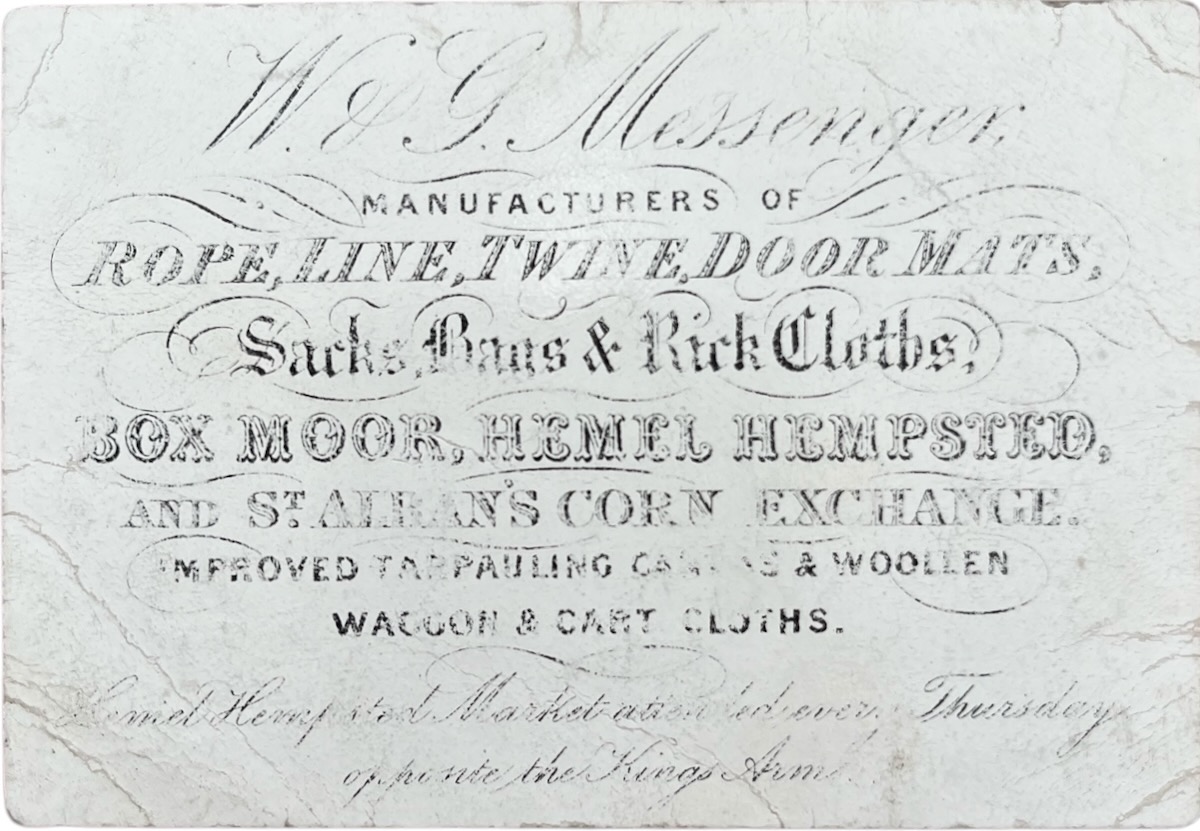 W. & G. Messenger,
MANUFACTURERS OF
ROPE, LINE, TWINE, DOOR MATS,
Sacks, Bags & Rick Cloths,
BOX MOOR, HEMEL HEMPSTED,
AND ST. ALBAN'S CORN EXCHANGE.
IMPROVED TARPAULING CANVAS & WOOLLEN
WAGGON & CART CLOTHS.
Hemel Hempsted Market attended every Thursday
opposite the Kings Arms.